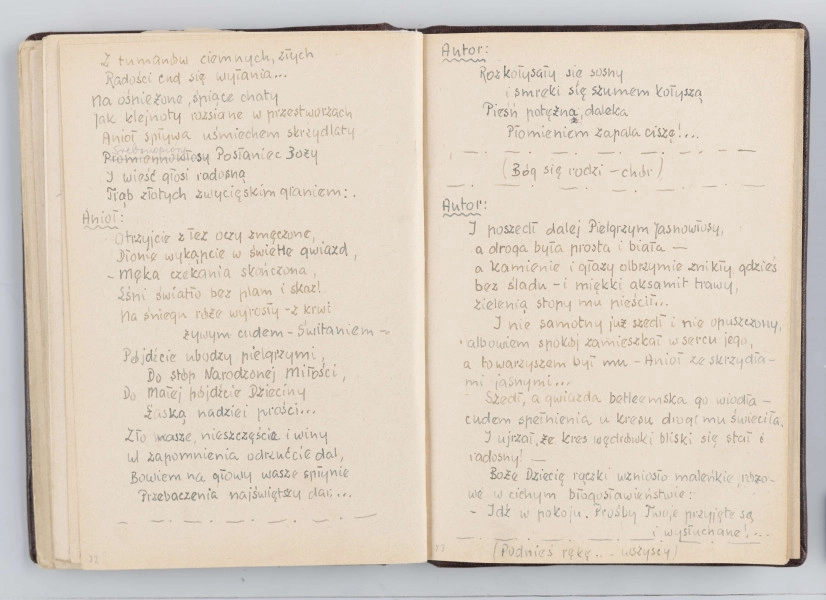 Z tumanów ciemnych, złych
Radości cud się wyłania...
Na ośnieżone, śpiące chaty
Jak klejnoty rozsiane w przestworzach
Anioł spływa uśmiechem skrzydlaty
Promiennowłosy Posłaniec Boży
I wieść głosi radosną
Trąb złotych zwycięskim graniem:.
Anioł:
Otrzyjcie z łez oczy zmęczone,
Dłonie wykąpcie w świetle gwiazd,
- Męka czekania skończona,
Lśni światło bez plam i skaz!
Na śniegu róże wyrosły - z krwi
żywym cudem - Świtaniem -
Pójdźcie ubodzy pielgrzymi,
Do stóp Narodzonej Miłości,
Do Małej pójdźcie Dzieciny
Łaską nadziei prości...
Zło wasze, nieszczęście i winy
W zapomnienia odrzućcie dal,
Bowiem na głowy wasze spłynie
Przebaczenia najświętszy dar...
22
Autor:
Rozkołysały się sosny
i smreki się szumem kołyszą
Pieśń potężna, daleka
Płomieniem zapala ciszę!...
(Bóg się rodzi - chór)
Autor:
I poszedł dalej Pielgrzym Jasnowłosy,
a droga była prosta i biała —
a kamienie i głazy olbrzymie znikły gdzieś
bez śladu - i miękki aksamit trawy,
zielenią stopy mu pieścił...
I nie samotny już szedł i nie opuszczony,
albowiem spokój zamieszkał w sercu jego,
a towarzyszem był mu - Anioł ze skrzydła-
mi jasnymi...
Szedł, a gwiazda betleemska go wiodła -
cudem spełnienia u kresu drogi mu świeciła.
I ujrzał, że kres wędrówki bliski się stał i
radosny! —
Boże Dziecię rączki wzniosło maleńkie, różo-
we w cichym błogosławieństwie:
- Idź w pokoju. Prośby Twoje przyjęte są
i wysłuchane!...
23
(Podnieś rękę... wszyscy)